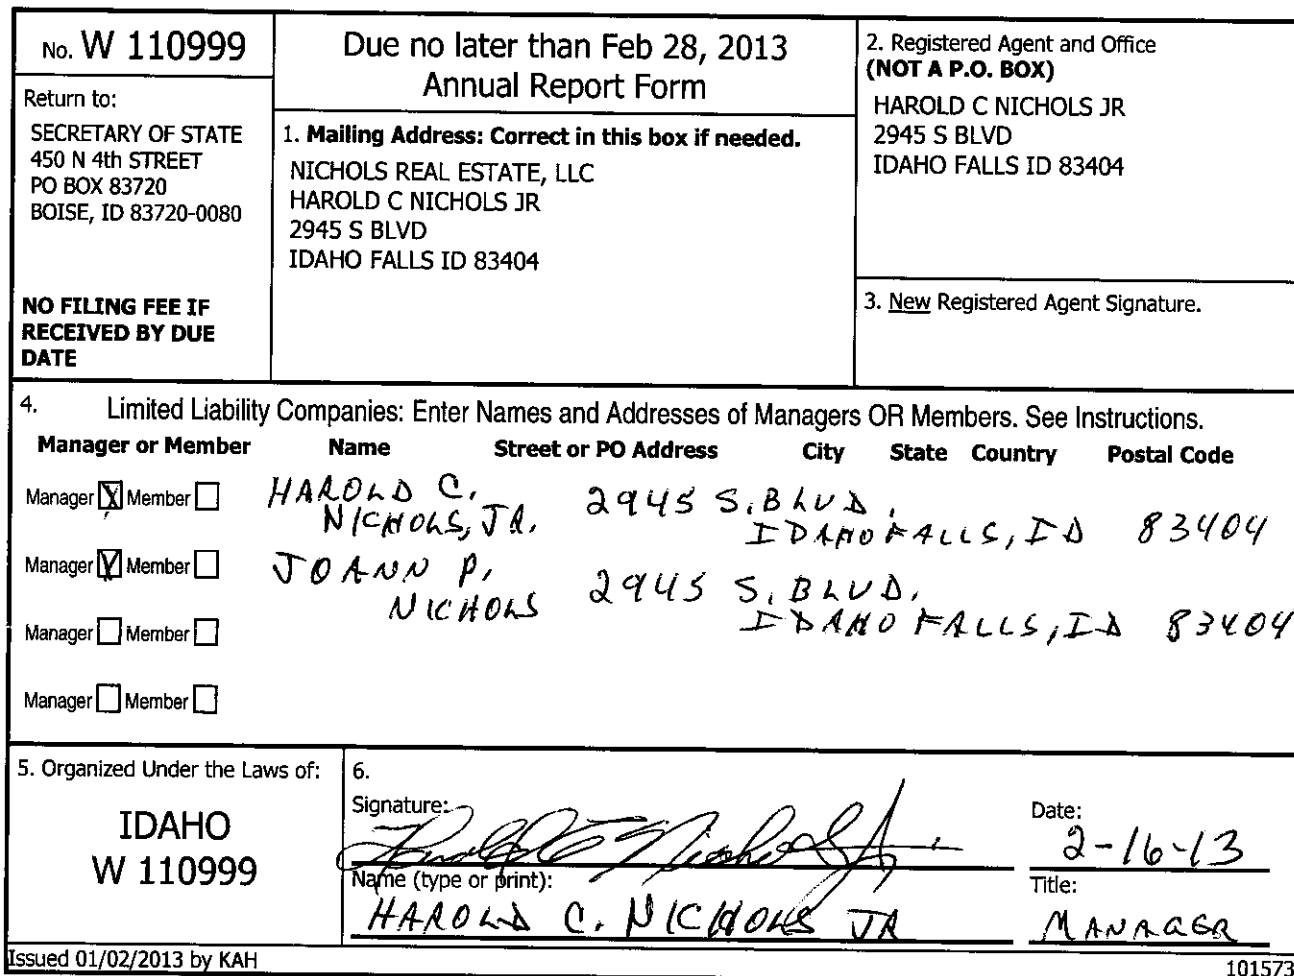 No. W 110999
Return to:
SECRETARY OF STATE
450 N 4th STREET
PO BOX 83720
BOISE, ID 83720-0080
NO FILING FEE IF
RECEIVED BY DUE
DATE
Due no later than Feb 28, 2013
Annual Report Form
1. Mailing Address: Correct in this box if needed.
NICHOLS REAL ESTATE, LLC
HAROLD C NICHOLS JR
2945 S BLVD
IDAHO FALLS ID 83404
2. Registered Agent and Office
(NOT A P.O. BOX)
HAROLD C NICHOLS JR
2945 S BLVD
IDAHO FALLS ID 83404
3. New Registered Agent Signature.
4. Limited Liability Companies: Enter Names and Addresses of Managers OR Members. See Instructions.
Manager or Member Name Street or PO Address City State Country Postal Code
Manager X Member HAROLD C. 2945 S. BLVD.
NICHOLS, JR. IDAHO FALLS, ID 83404
Manager X Member JOANN P. 2945 S. BLVD.
NICHOLS IDAHO FALLS, ID 83404
Manager Member
Manager Member
5. Organized Under the Laws of:
IDAHO
W 110999
6.
Signature: Harold C Nichols Jr.
Date: 2-16-13
Name (type or print): HAROLD C. NICHOLS JR
Title: MANAGER
Issued 01/02/2013 by KAH
101573